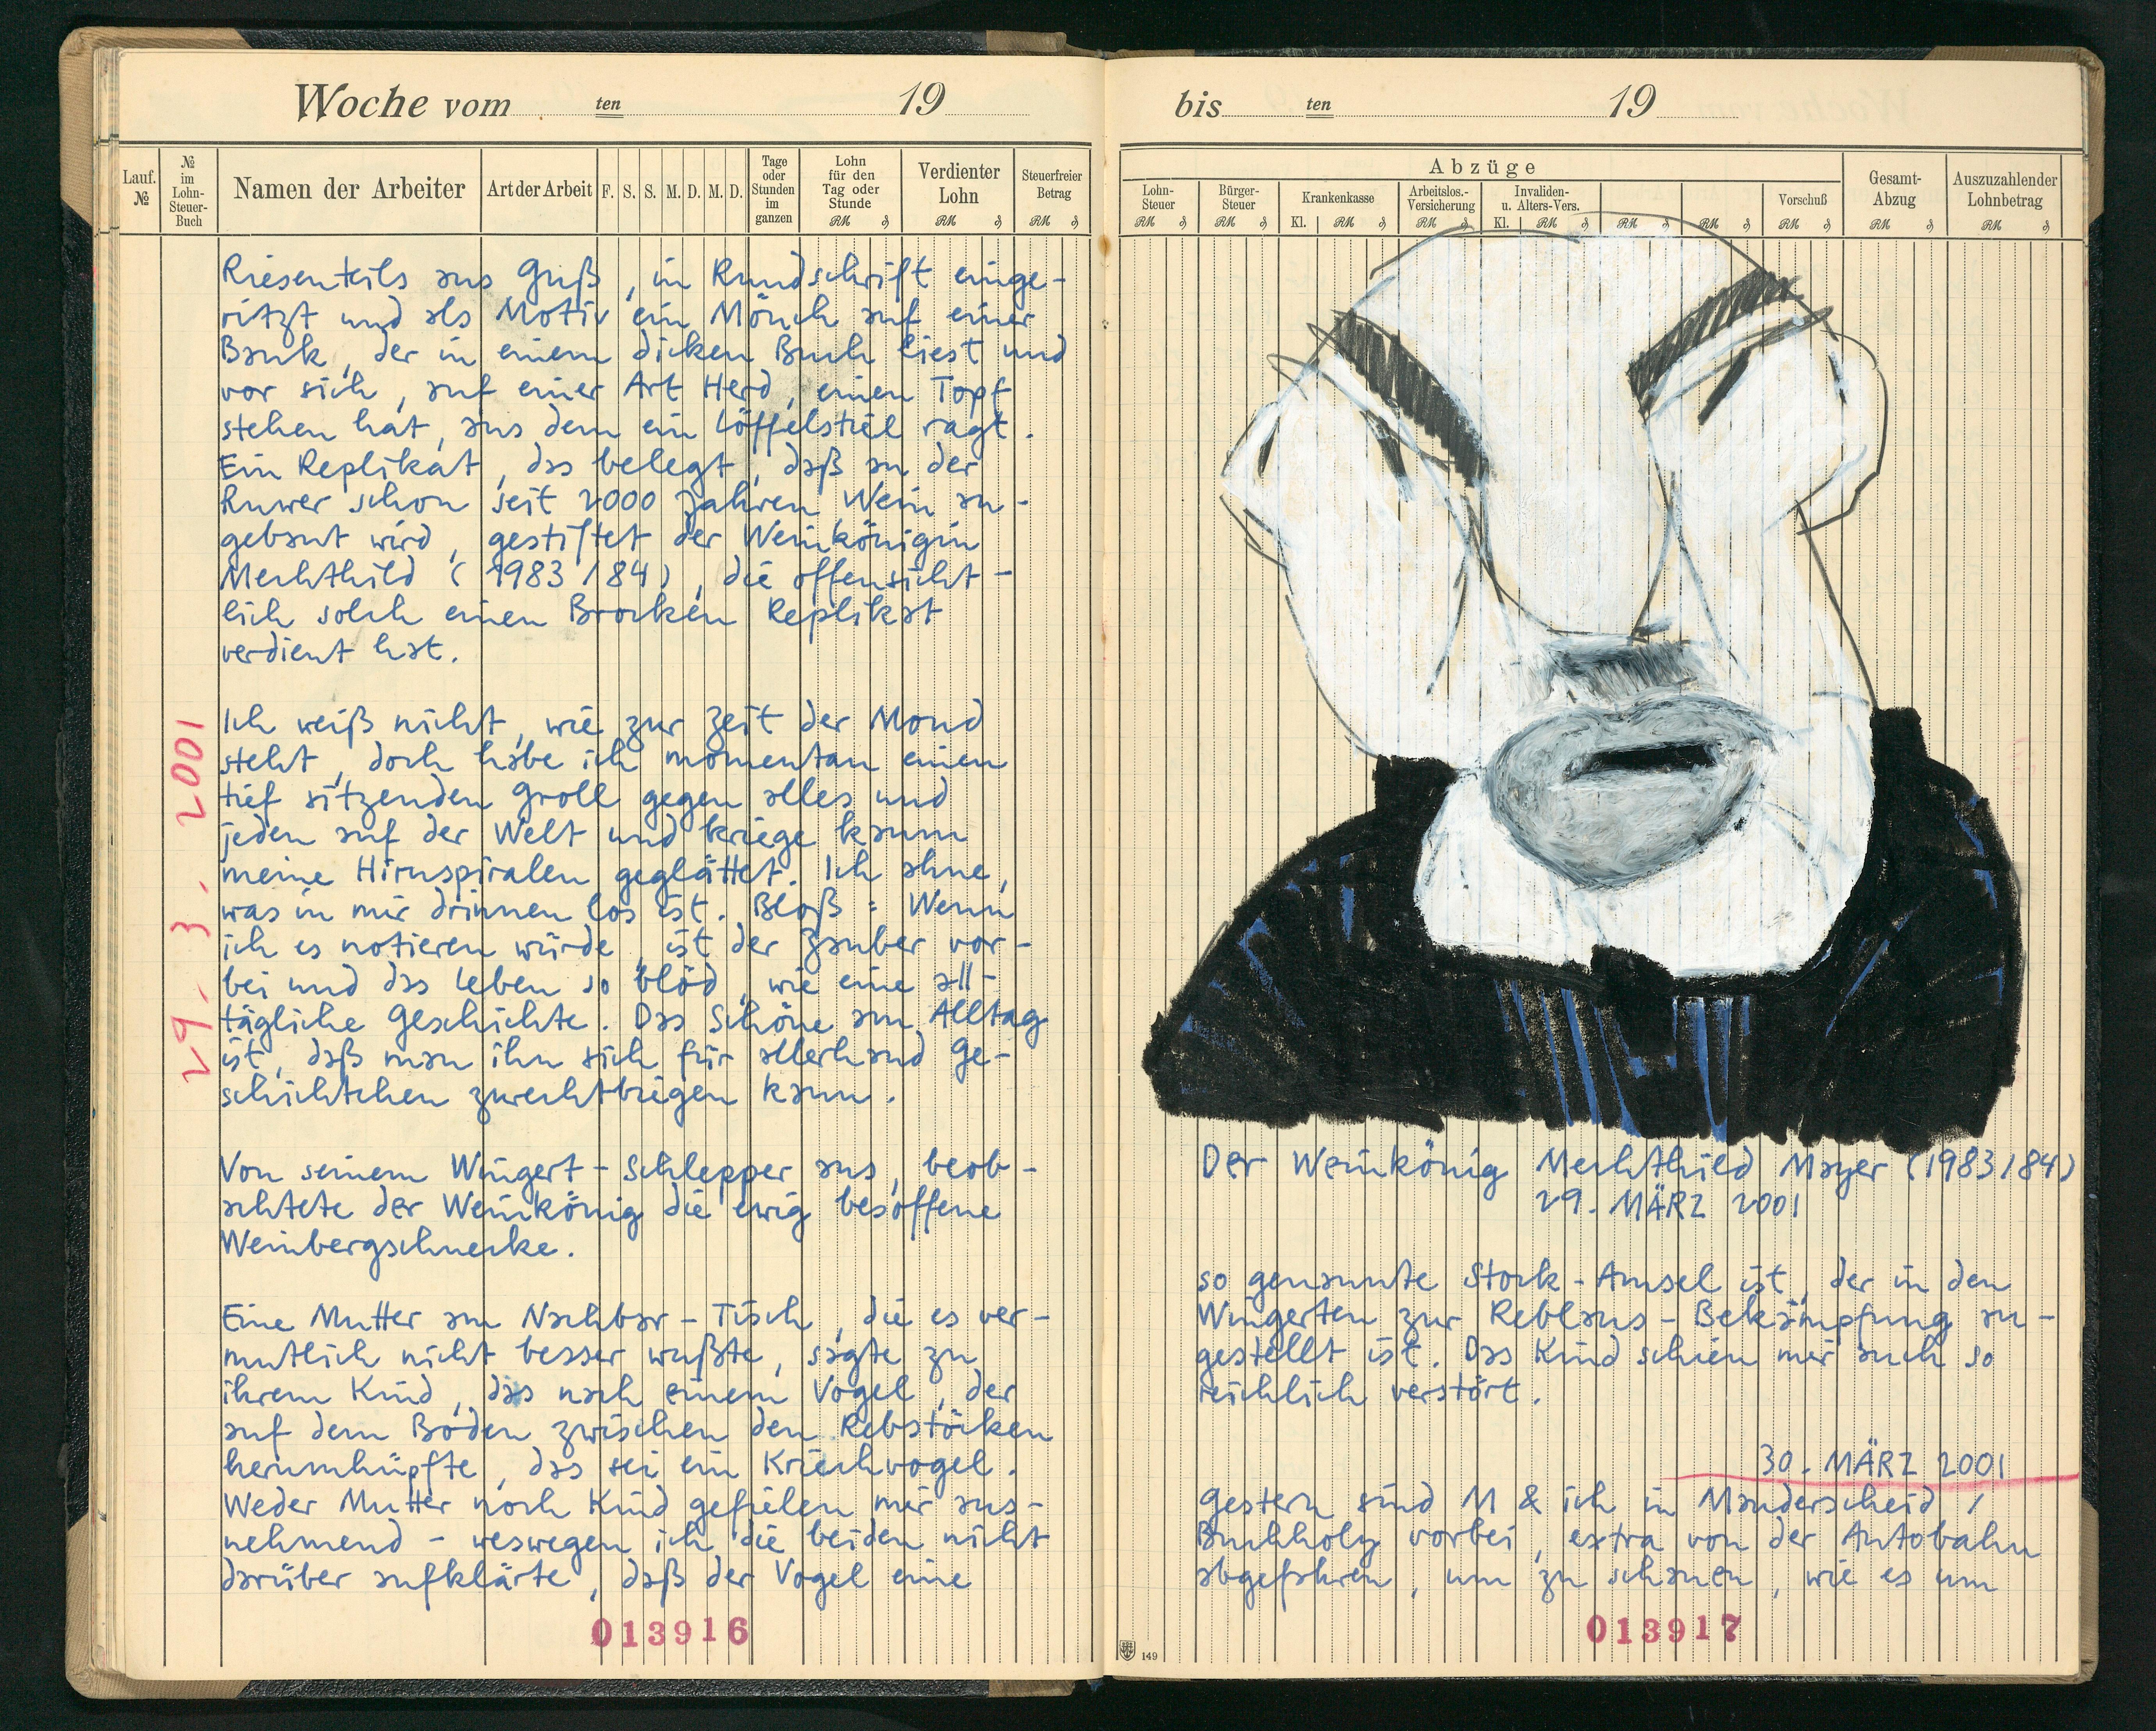 Woche vom ten 19
Lauf. №
№ im Lohn-Steuer-Buch
Namen der Arbeiter
Art der Arbeit
F. S. S. M. D. M. D.
Tage oder Stunden im ganzen
Lohn für den Tag oder Stunde
RM ₰
Verdienter Lohn
RM ₰
Steuerfreier Betrag
RM ₰
Riesenteils aus Guß, in Rundschrift einge-
ritzt und als Motiv ein Mönch auf einer
Bank, der in einem dicken Buch liest und
vor sich, auf einer Art Herd, einen Topf
stehen hat, aus dem ein Löffelstiel ragt.
Ein Replikat, das belegt, daß an der
Ruwer schon seit 2000 Jahren Wein an-
gebaut wird, gestiftet der Weinkönigin
Mechthild (1983/84), die offensicht-
lich solch einen Brocken Replikat
verdient hat.
29. 3. 2001
Ich weiß nicht, wie zur Zeit der Mond
steht, doch habe ich momentan einen
tief sitzenden Groll gegen alles und
jeden auf der Welt und kriege kaum
meine Hirnspiralen geglättet. Ich ahne,
was in mir drinnen los ist. Bloß: Wenn
ich es notieren würde, ist der Zauber vor-
bei und das Leben so blöd, wie eine all-
tägliche Geschichte. Das Schöne am Alltag
ist, daß man ihn sich für allerhand Ge-
schichtchen zurechtbiegen kann.
Von seinem Wingert-Schlepper aus, beob-
achtete der Weinkönig die ewig besoffene
Weinbergschnecke.
Eine Mutter am Nachbar-Tisch, die es ver-
mutlich nicht besser wußte, sagte zu
ihrem Kind, das nach einem Vogel, der
auf dem Boden zwischen den Rebstöcken
herumhüpfte, das sei ein Kriechvogel.
Weder Mutter noch Kind gefielen mir aus-
nehmend – weswegen ich die beiden nicht
darüber aufklärte, daß der Vogel eine
013916
bis ten 19
Abzüge
Lohn-Steuer
RM ₰
Bürger-Steuer
RM ₰
Krankenkasse
Kl. RM ₰
Arbeitslos.-Versicherung
RM ₰
Invaliden- u. Alters-Vers.
Kl. RM ₰
RM ₰
RM ₰
Vorschuß
RM ₰
Gesamt-Abzug
RM ₰
Auszuzahlender Lohnbetrag
RM ₰
Der Weinkönig Mechthild Mayer (1983/84)
29. MÄRZ 2001
so genannte Stock-Amsel ist, der in den
Wingerten zur Reblaus-Bekämpfung an-
gestellt ist. Das Kind schien mir auch so
reichlich verstört.
30. MÄRZ 2001
Gestern sind M & ich in Manderscheid /
Buchholz vorbei, extra von der Autobahn
abgefahren, um zu schauen, wie es um
013917
149